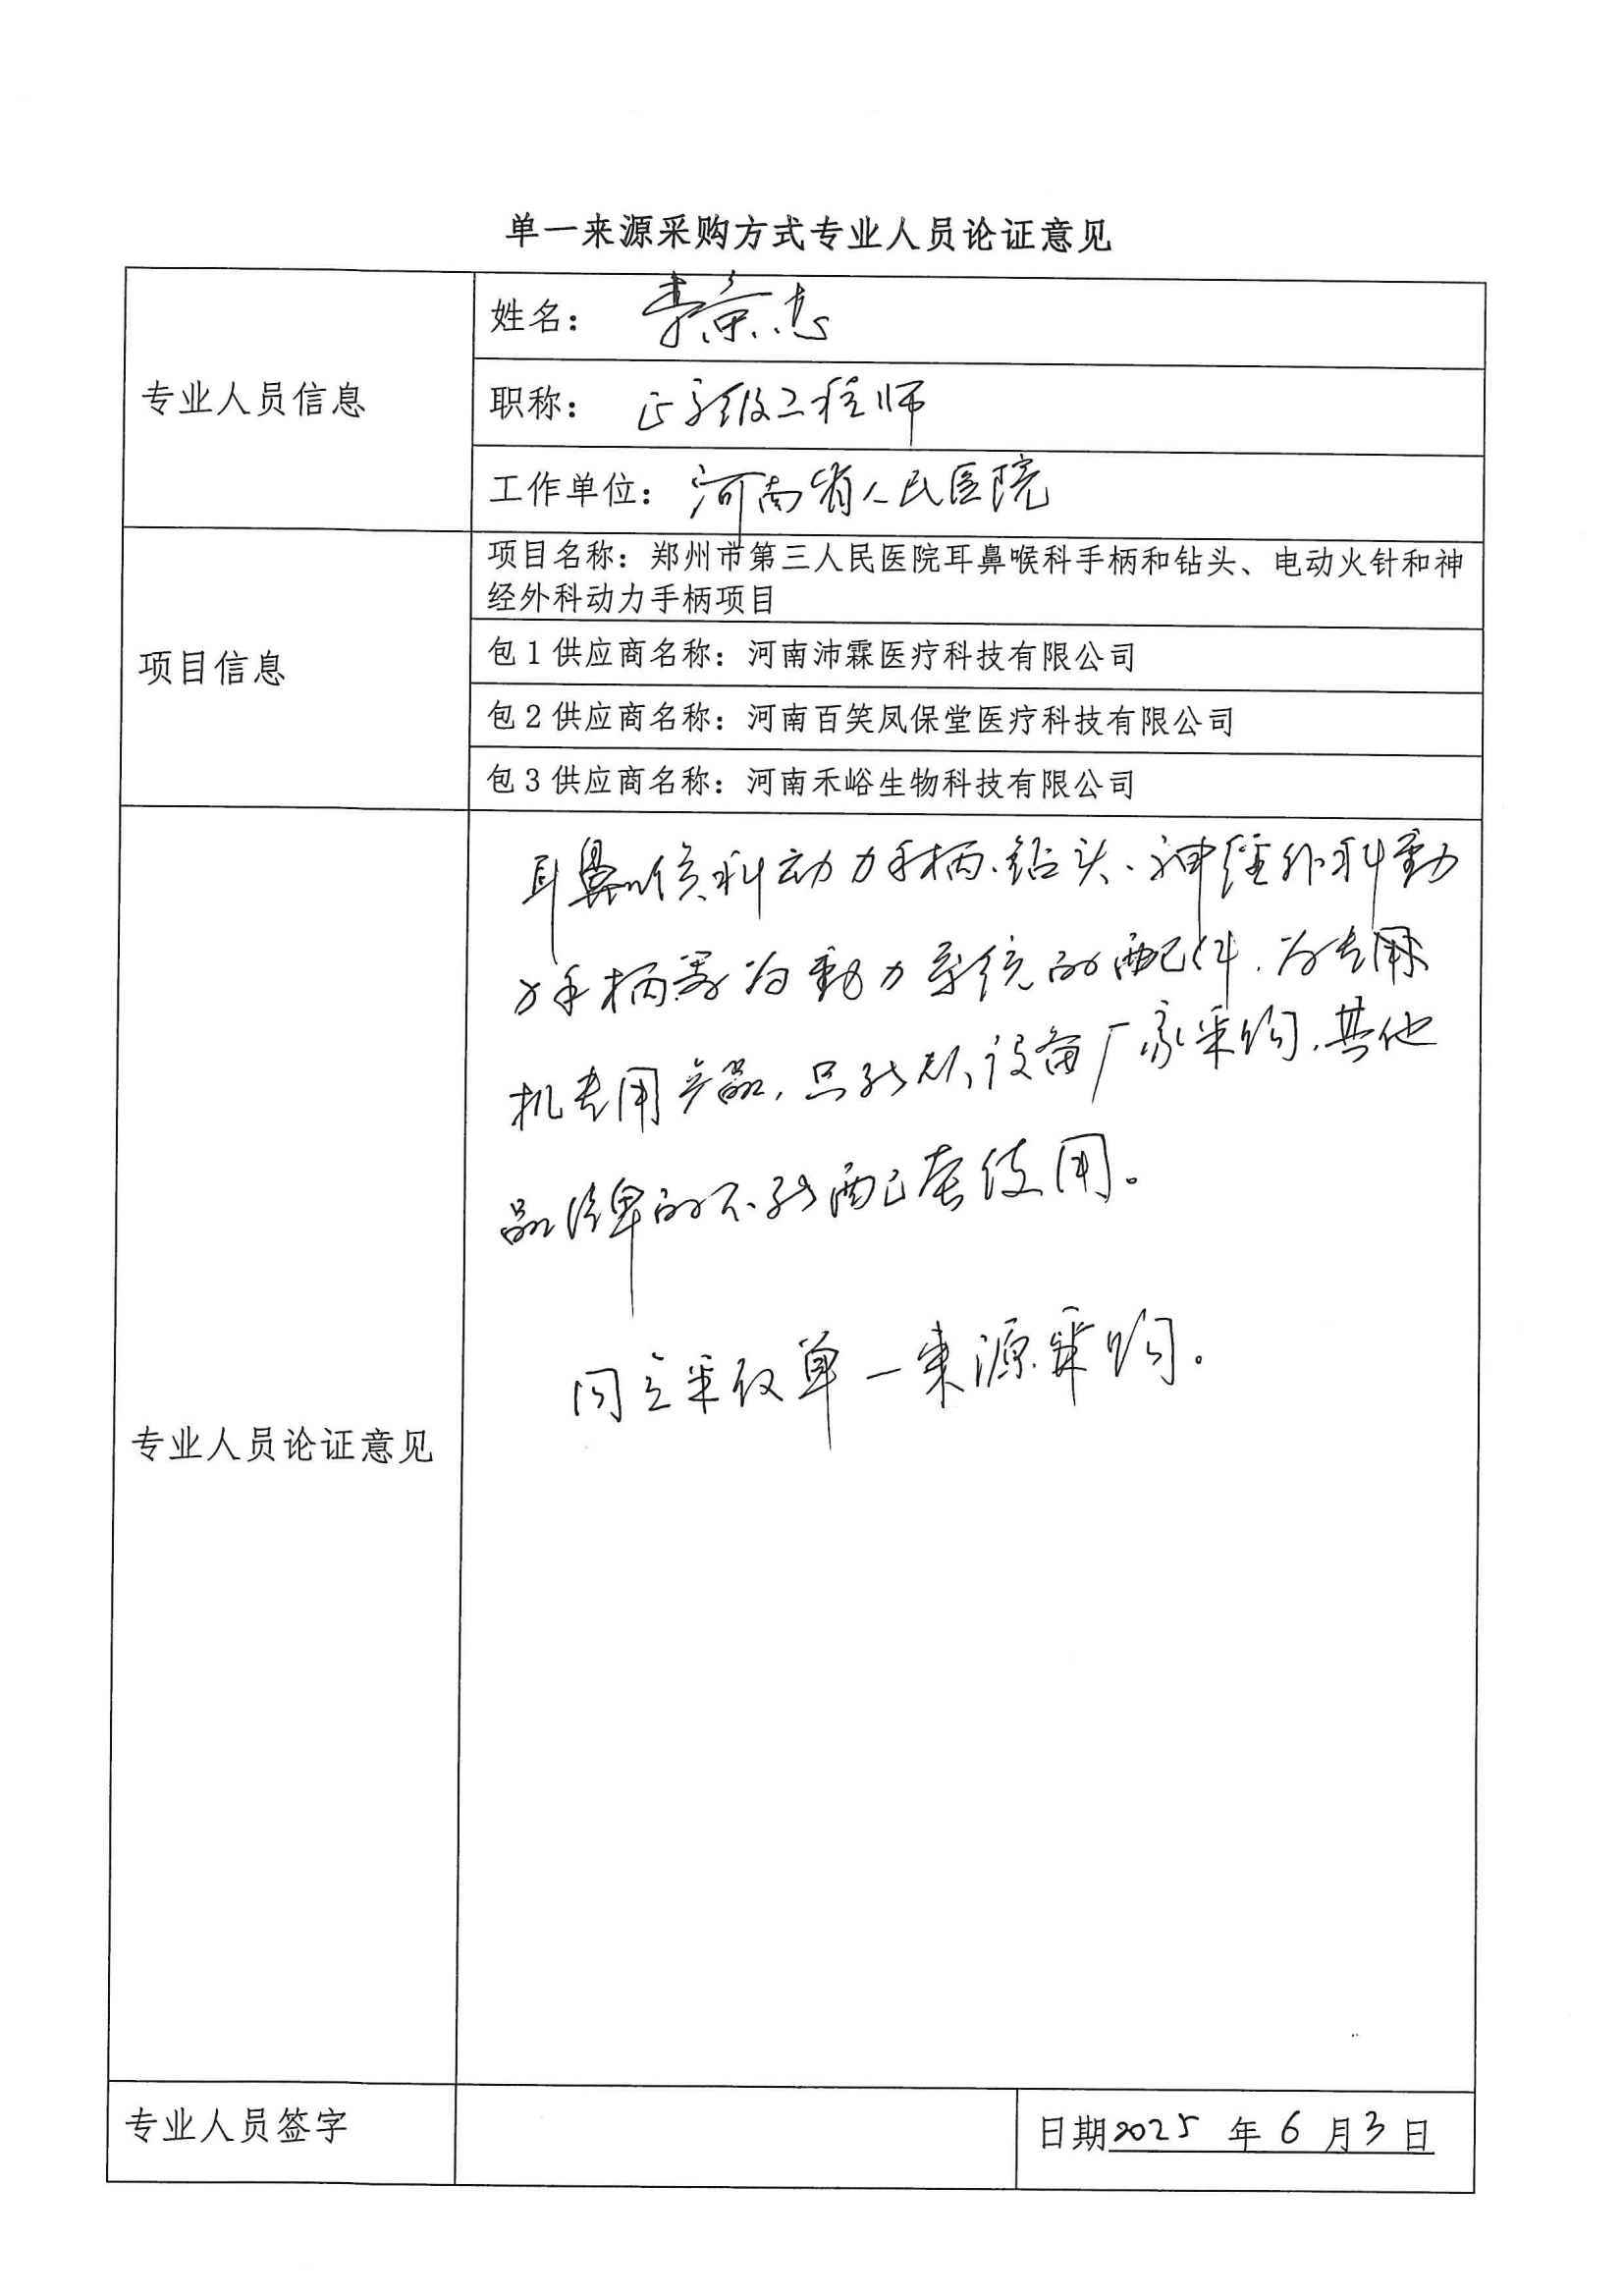 单一来源采购方式专业人员论证意见
专业人员信息
姓名：李京忠
职称：正高级工程师
工作单位：河南省人民医院
项目信息
项目名称：郑州市第三人民医院耳鼻喉科手柄和钻头、电动火针和神
经外科动力手柄项目
包1供应商名称：河南沛霖医疗科技有限公司
包2供应商名称：河南百笑凤保堂医疗科技有限公司
包3供应商名称：河南禾峪生物科技有限公司
专业人员论证意见
耳鼻喉科动力手柄、钻头、神经外科動
力手柄等为動力系统的配件，为专用
机专用产品，只能从设备厂家采购，其他
品牌的不能配套使用。
同意采取单一来源采购。
专业人员签字
日期2025年6月3日